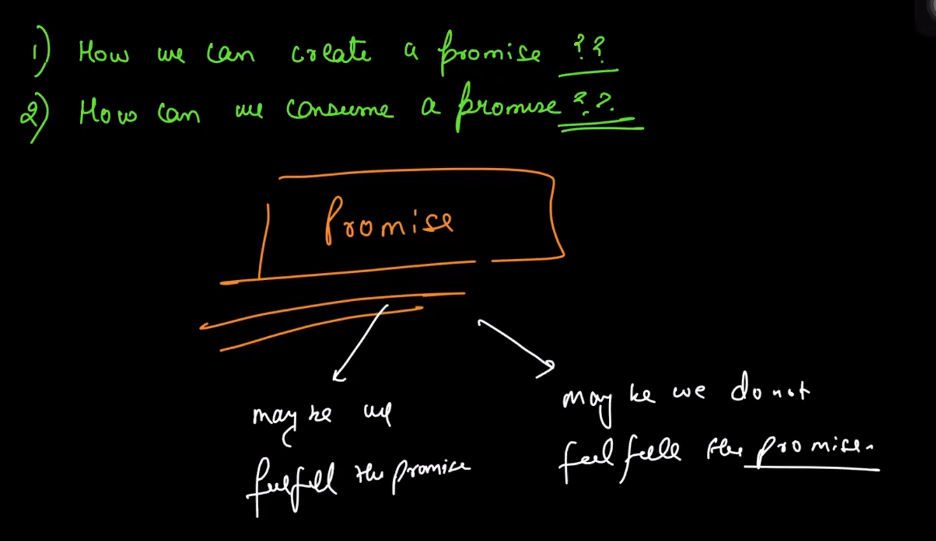 1) How we can create a promise ??
2) How can we consume a promise ??
Promise
may be we
fulfill the promise
may be we do not
fulfill the promise.